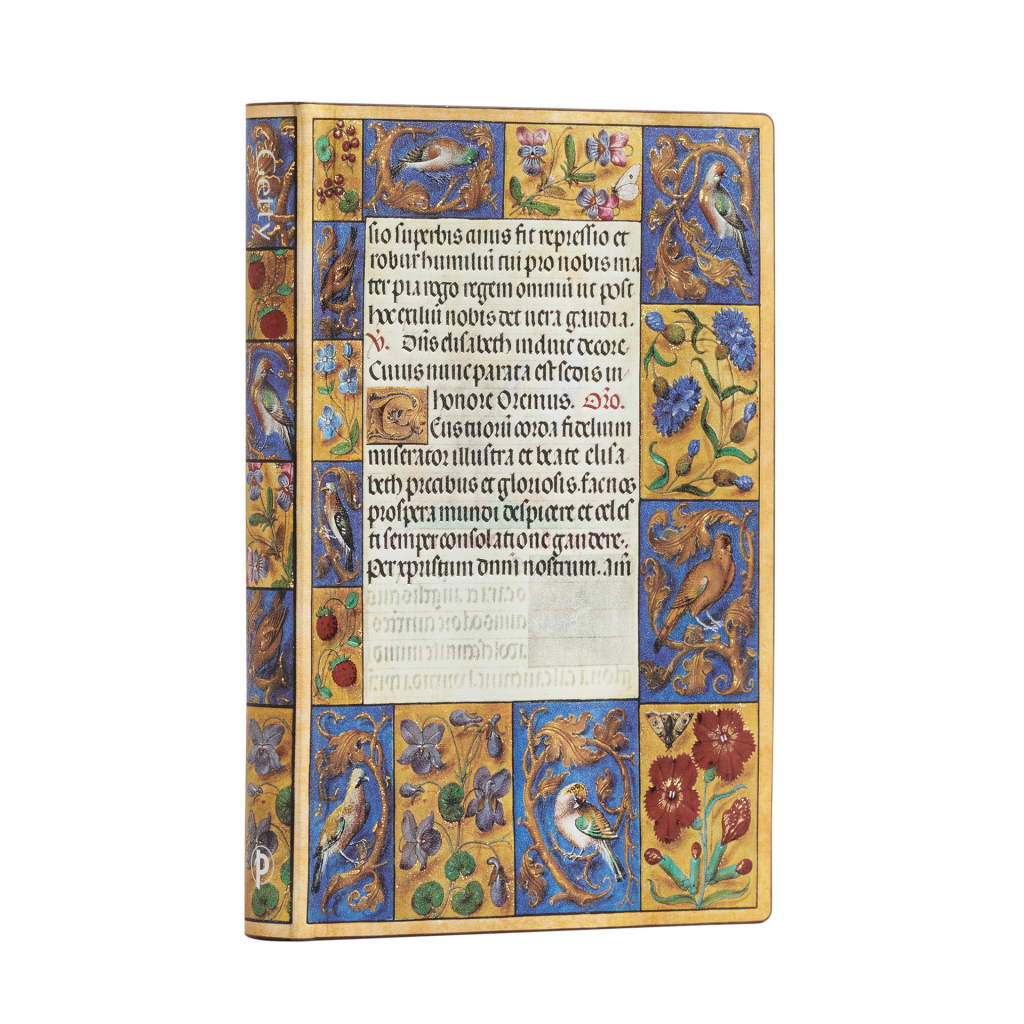 Getty
sio superbis cuius fit repressio et
robur humiliū tui pro nobis ma
ter pia rogo regem omniū ut post
hoc exiliū nobis det uera gaudia.
V̄. Dn̄s elisabeth induit decore
Cuius nunc parata est sedis in
honore Oremus. Or̄o.
Eus tuorū corda fidelium
miserator illustra et beate elisa
beth precibus et gloriosis. fac nos
prospera mundi despicere et celes
ti semper consolatione gaudere.
Per xpristum dnm̄ nostrum. am̄